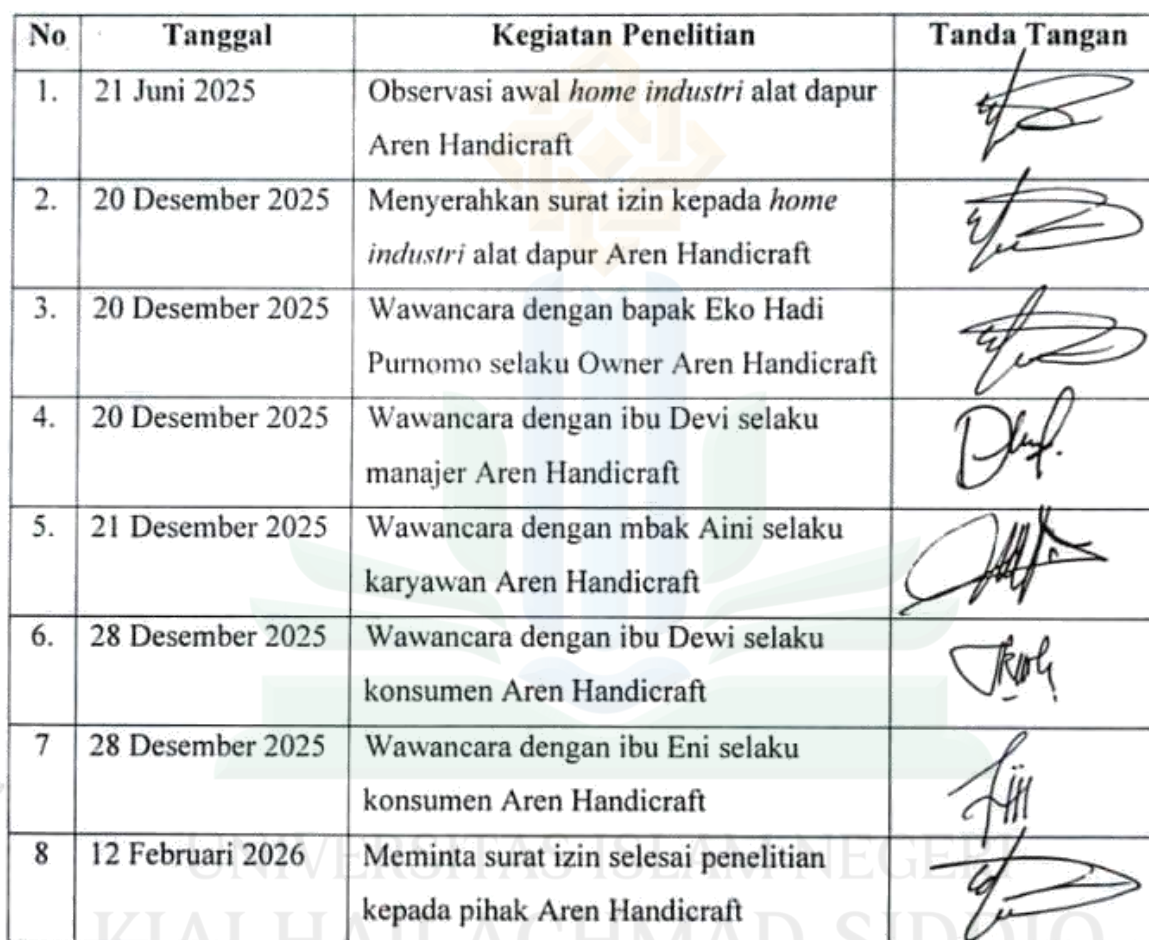 No Tanggal Kegiatan Penelitian Tanda Tangan
1. 21 Juni 2025 Observasi awal home industri alat dapur
Aren Handicraft
2. 20 Desember 2025 Menyerahkan surat izin kepada home
industri alat dapur Aren Handicraft
3. 20 Desember 2025 Wawancara dengan bapak Eko Hadi
Purnomo selaku Owner Aren Handicraft
4. 20 Desember 2025 Wawancara dengan ibu Devi selaku
manajer Aren Handicraft
5. 21 Desember 2025 Wawancara dengan mbak Aini selaku
karyawan Aren Handicraft
6. 28 Desember 2025 Wawancara dengan ibu Dewi selaku
konsumen Aren Handicraft
7 28 Desember 2025 Wawancara dengan ibu Eni selaku
konsumen Aren Handicraft
8 12 Februari 2026 Meminta surat izin selesai penelitian
kepada pihak Aren Handicraft
UNIVERSITAS ISLAM NEGERI
KIAI HAJI ACHMAD SIDDIQ